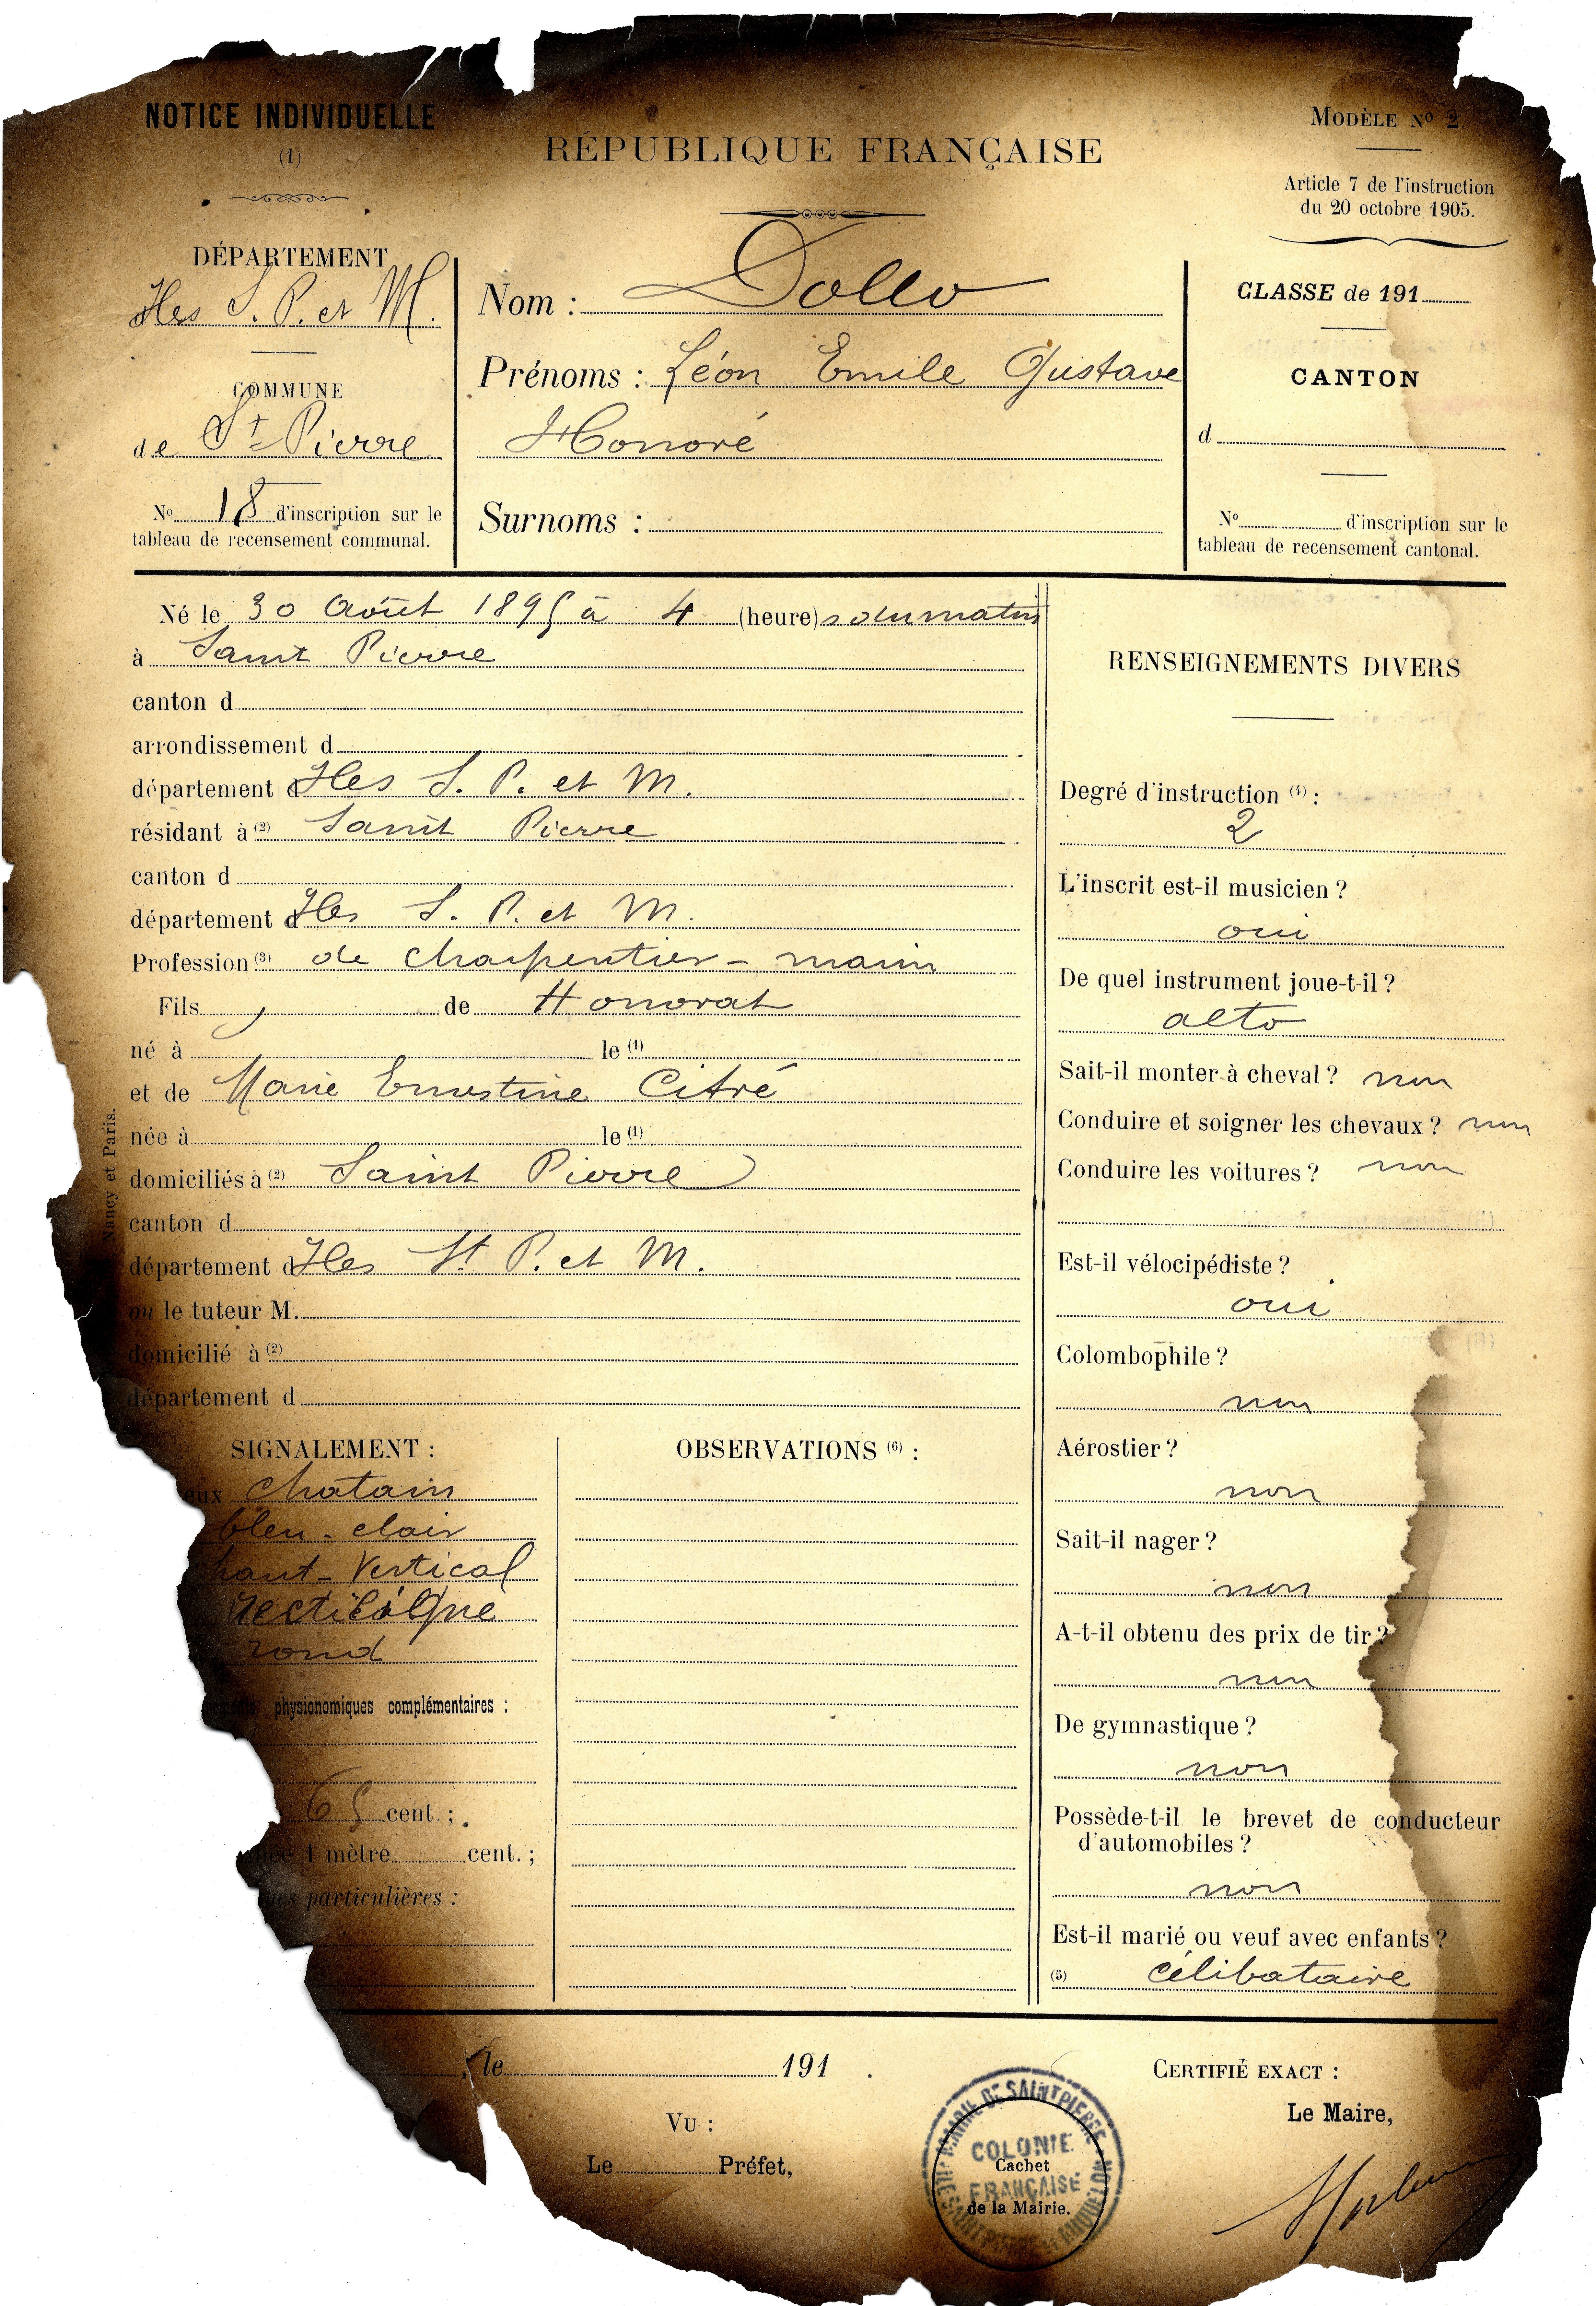 NOTICE INDIVIDUELLE
(1)
RÉPUBLIQUE FRANÇAISE
MODÈLE No 2.
Article 7 de l'instruction
du 20 octobre 1905.
DÉPARTEMENT
Iles S. P. et M.
COMMUNE
de St Pierre
No 18 d'inscription sur le
tableau de recensement communal.
Nom : Dollo
Prénoms : Léon Emile Gustave
Honoré
Surnoms :
CLASSE de 191
CANTON
d
No d'inscription sur le
tableau de recensement cantonal.
Né le 30 Août 1895 à 4 (heure)s du matin
à Saint Pierre
canton d
arrondissement d
département d Iles S. P. et M.
résidant à (2) Saint Pierre
canton d
département d Iles S. P. et M.
Profession (3) de charpentier - marin
Fils de Honorat
né à le (1)
et de Marie Ernestine Citré
née à le (1)
domiciliés à (2) Saint Pierre
canton d
département d Iles St P. et M.
ou le tuteur M.
domicilié à (2)
département d
Nancy et Paris.
SIGNALEMENT :
eux chatain
bleu - clair
haut - Vertical
rectiligne
rond
physionomiques complémentaires :
65 cent. ;
1 mètre cent. ;
particulières :
OBSERVATIONS (6) :
RENSEIGNEMENTS DIVERS
Degré d'instruction (4) :
2
L'inscrit est-il musicien ?
oui
De quel instrument joue-t-il ?
alto
Sait-il monter à cheval ? non
Conduire et soigner les chevaux ? non
Conduire les voitures ? non
Est-il vélocipédiste ?
oui
Colombophile ?
non
Aérostier ?
non
Sait-il nager ?
non
A-t-il obtenu des prix de tir ?
non
De gymnastique ?
non
Possède-t-il le brevet de conducteur
d'automobiles ?
non
Est-il marié ou veuf avec enfants ?
(5) célibataire
, le 191 .
VU :
Le Préfet,
MAIRIE DE SAINT PIERRE
COLONIE
FRANÇAISE
Cachet
de la Mairie.
CERTIFIÉ EXACT :
Le Maire,